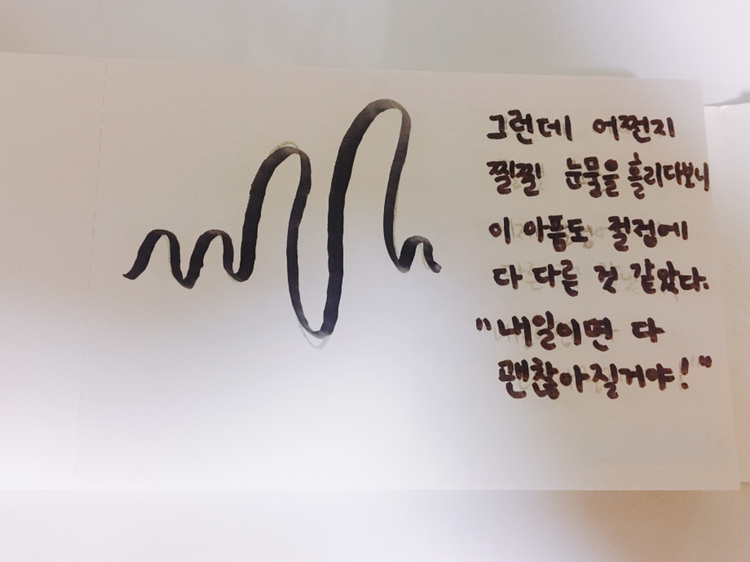 그런데 어쩐지
찔찔 눈물을 흘리다보니
이 아픔도 절정에
다 다른 것 같았다.
"내일이면 다
괜찮아질거야!"